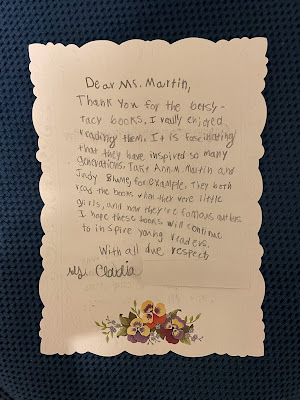 Dear Ms. Martin,
Thank you for the betsy-
Tacy books. I really enjoyed
reading them. It is fascinating
that they have inspired so many
generations. Take Ann M. Martin and
Judy Blume, for example. They both
read the books when they were little
girls, and now they're famous authors.
I hope these books will continue
to inspire young readers.
With all due respect,
Claudia